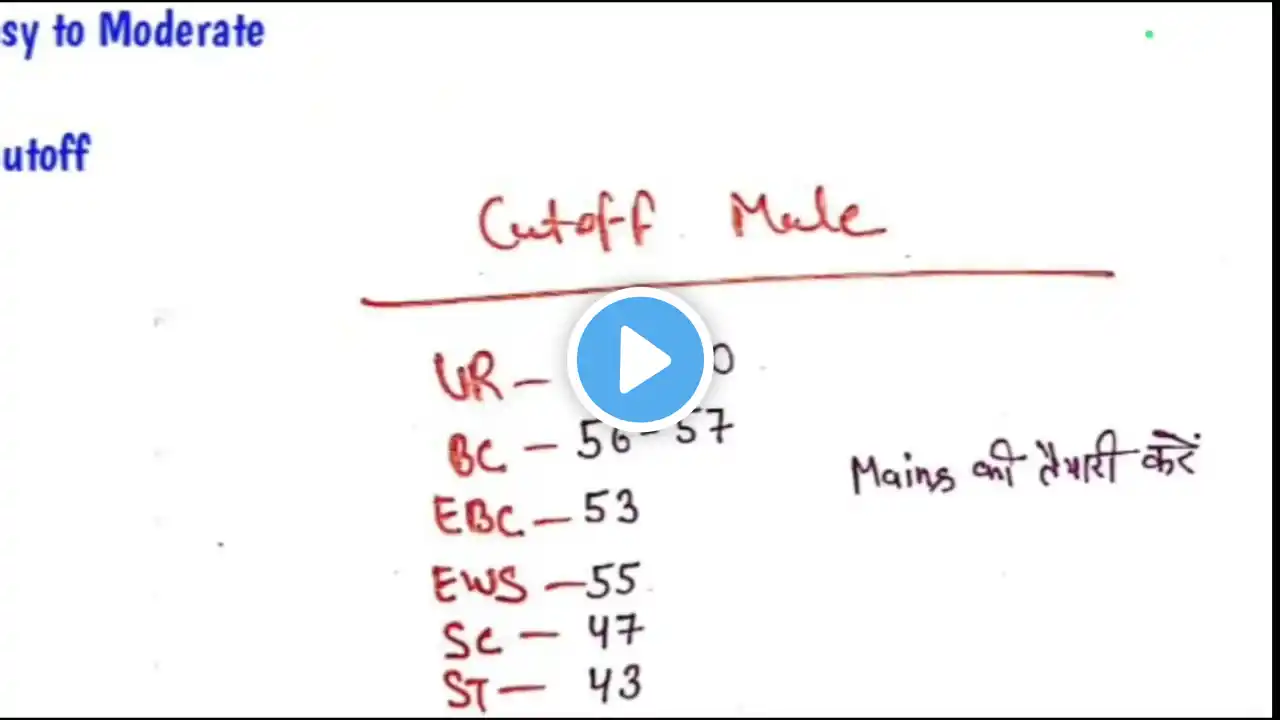 sy to Moderate
utoff
Cutoff Male
UR - 0
BC - 56-57
EBC - 53
Mains की तैयारी करें
EWS - 55
SC - 47
ST - 43